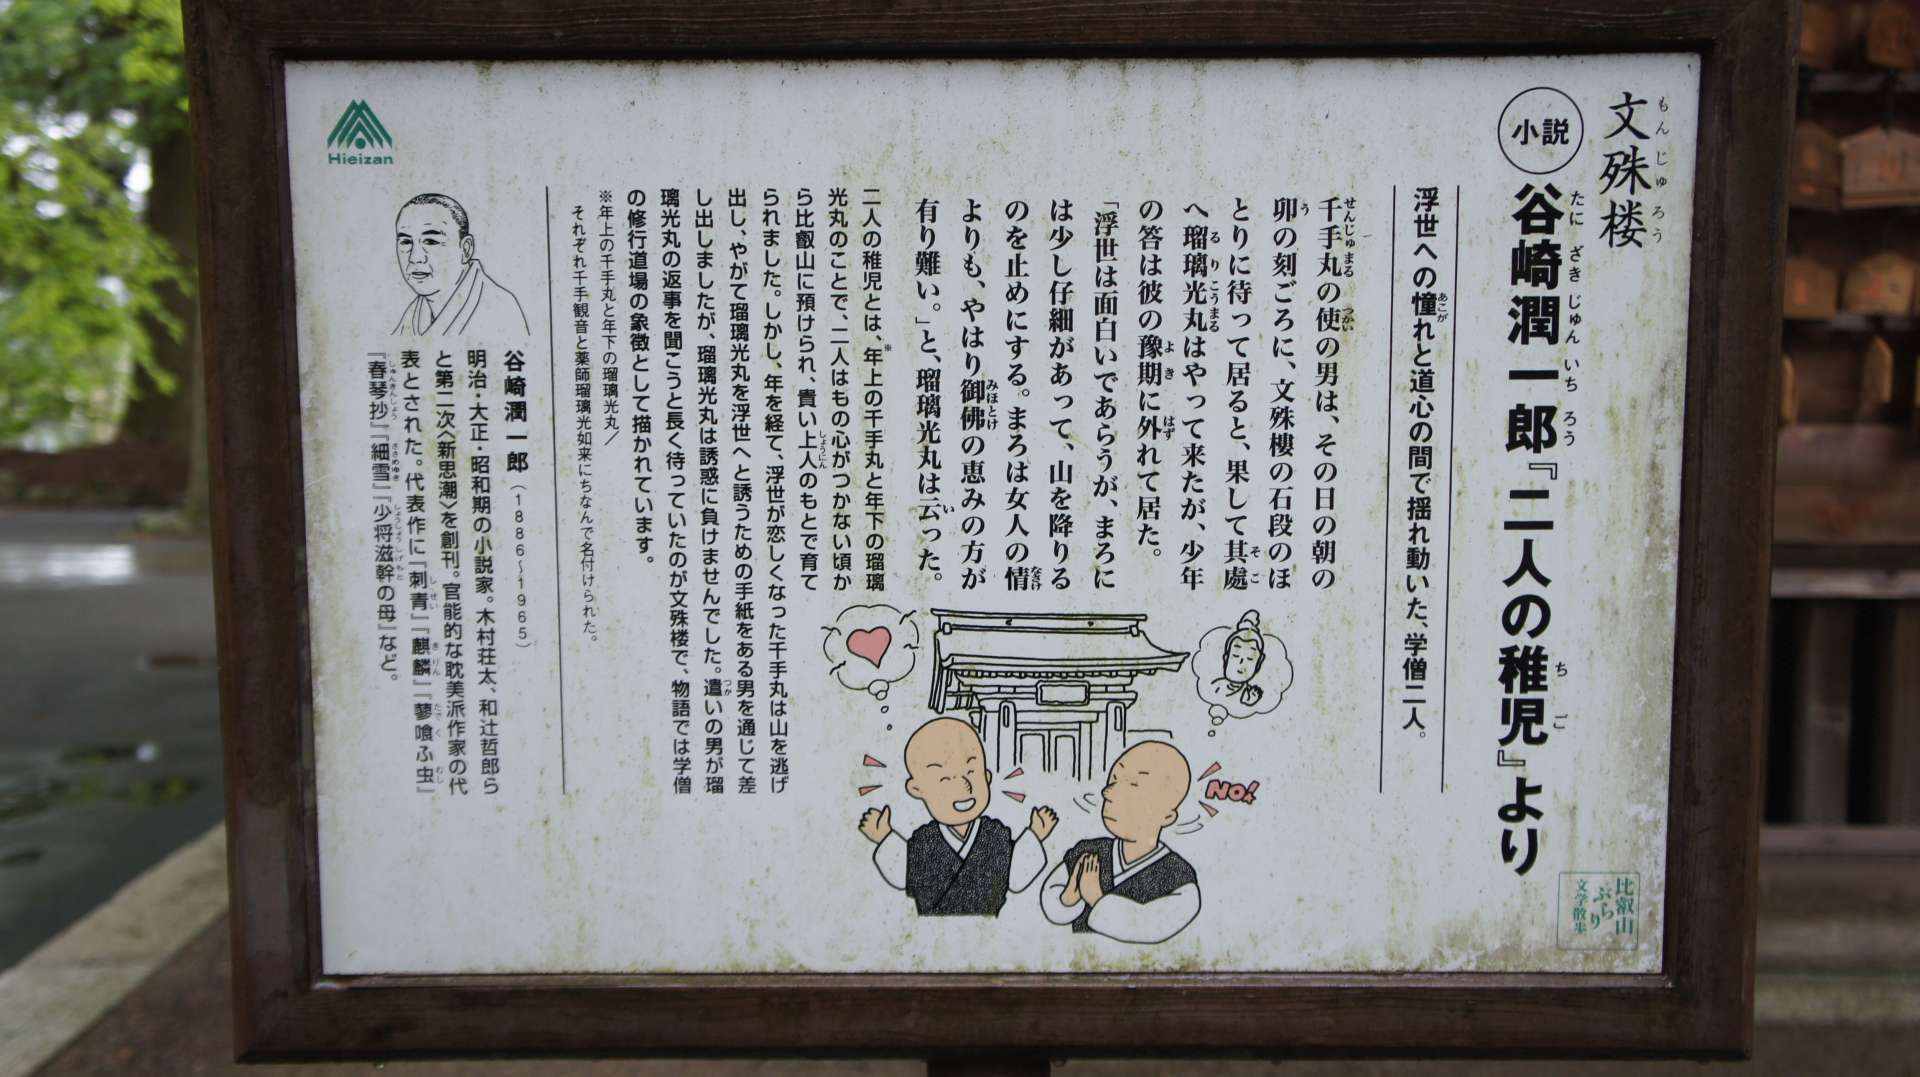 文殊楼
もんじゅろう
小説
谷崎潤一郎『二人の稚児』より
たにざきじゅんいちろう
ちご
浮世への憧れと道心の間で揺れ動いた、学僧二人。
あこが
千手丸の使の男は、その日の朝の
せんじゅまる
つかい
卯の刻ごろに、文殊樓の石段のほ
う
とりに待って居ると、果して其處
そこ
へ瑠璃光丸はやって来たが、少年
るりこうまる
の答は彼の豫期に外れて居た。
よき
はず
「浮世は面白いであらうが、まろに
は少し仔細があって、山を降りる
のを止めにする。まろは女人の情
なさけ
よりも、やはり御佛の恵みの方が
みほとけ
有り難い。」と、瑠璃光丸は云った。
い
二人の稚児とは、※年上の千手丸と年下の瑠璃
光丸のことで、二人はもの心がつかない頃か
ら比叡山に預けられ、貴い上人のもとで育て
しょうにん
られました。しかし、年を経て、浮世が恋しくなった千手丸は山を逃げ
出し、やがて瑠璃光丸を浮世へと誘うための手紙をある男を通じて差
し出しましたが、瑠璃光丸は誘惑に負けませんでした。遣いの男が瑠
つか
璃光丸の返事を聞こうと長く待っていたのが文殊楼で、物語では学僧
の修行道場の象徴として描かれています。
※年上の千手丸と年下の瑠璃光丸／
それぞれ千手観音と薬師瑠璃光如来にちなんで名付けられた。
NO!
谷崎潤一郎(1886〜1965)
明治・大正・昭和期の小説家。木村荘太、和辻哲郎ら
と第二次〈新思潮〉を創刊。官能的な耽美派作家の代
表とされた。代表作に『刺青』『麒麟』『蓼喰ふ虫』
しせい
きりん
たでくむし
『春琴抄』『細雪』『少将滋幹の母』など。
しゅんきんしょう
ささめゆき
しょうしょうしげもと
Hieizan
比叡山
ぶらり
文学散歩